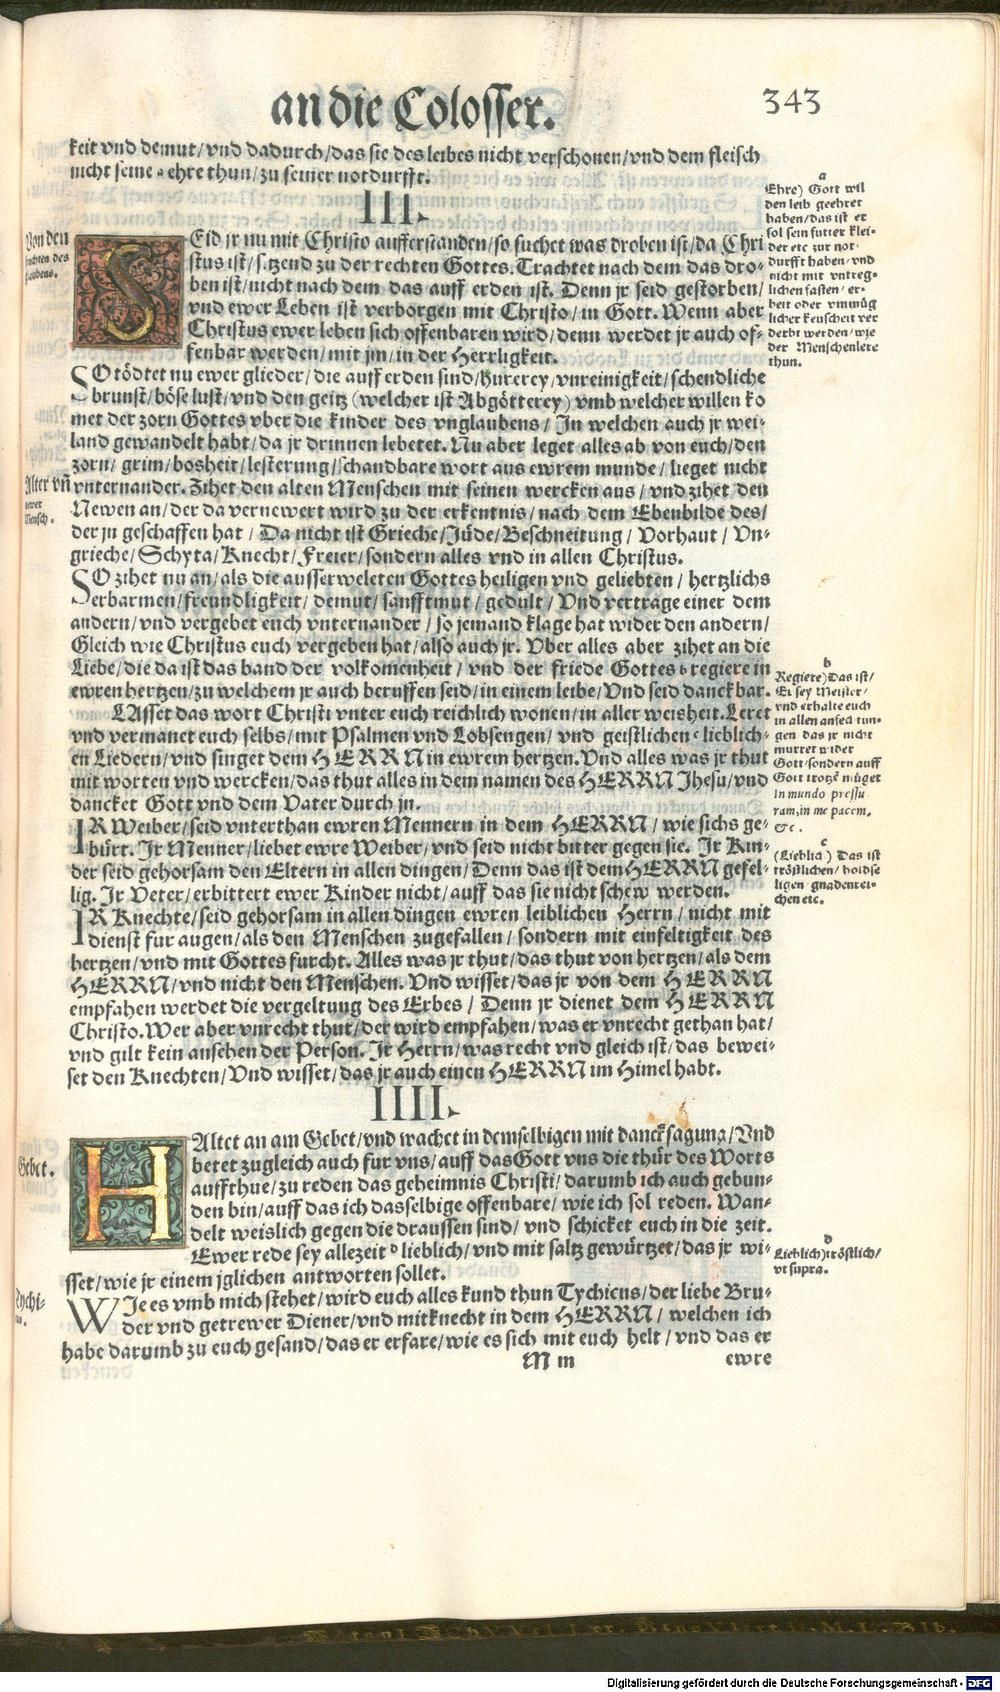 an die Colosser.
343
keit vnd demut/vnd dadurch/das sie des leibes nicht verschonen/vnd dem fleisch
nicht seine a ehre thun/zu seiner notdurfft.
III.
SEid jr nu mit Christo aufferstanden/so suchet was droben ist/da Chri
stus ist/sitzend zu der rechten Gottes. Trachtet nach dem das dro-
ben ist/nicht nach dem das auff erden ist. Denn jr seid gestorben/
vnd ewer Leben ist verborgen mit Christo/in Gott. Wenn aber
Christus ewer leben sich offenbaren wird/denn werdet jr auch of-
fenbar werden/mit jm/in der Herrligkeit.
SO tödtet nu ewer glieder/die auff erden sind/hurerey/vnreinigkeit/schendliche
brunst/böse lust/vnd den geitz (welcher ist Abgötterey) vmb welcher willen ko
met der zorn Gottes vber die kinder des vnglaubens/In welchen auch jr wei-
land gewandelt habt/da jr drinnen lebetet. Nu aber leget alles ab von euch/den
zorn/grim/bosheit/lesterung/schandbare wort aus ewrem munde/lieget nicht
vnternander. Zihet den alten Menschen mit seinen wercken aus/vnd zihet den
Newen an/der da vernewert wird zu der erkentnis/nach dem Ebenbilde des/
der jn geschaffen hat/Da nicht ist Grieche/Jüde/Beschneitung/Vorhaut/Vn-
grieche/Schyta/Knecht/Freier/sondern alles vnd in allen Christus.
SO zihet nu an/als die ausserweleten Gottes heiligen vnd geliebten/hertzlichs
erbarmen/freundligkeit/demut/sanfftmut/gedult/Vnd vertrage einer dem
andern/vnd vergebet euch vnternander/so jemand klage hat wider den andern/
Gleich wie Christus euch vergeben hat/also auch jr. Vber alles aber zihet an die
Liebe/die da ist das band der volkomenheit/vnd der friede Gottes b regiere in
ewren hertzen/zu welchem jr auch beruffen seid/in einem leibe/Vnd seid danckbar.
LAsset das wort Christi vnter euch reichlich wonen/in aller weisheit. Leret
vnd vermanet euch selbs/mit Psalmen vnd Lobsengen/vnd geistlichen c lieblich-
en Liedern/vnd singet dem HERRN in ewrem hertzen. Vnd alles was jr thut
mit worten vnd wercken/das thut alles in dem namen des HERRN Jhesu/vnd
dancket Gott vnd dem Vater durch jn.
IR Weiber/seid vnterthan ewren Mennern in dem HERRN/wie sichs ge-
bürt. Jr Menner/liebet ewre Weiber/vnd seid nicht bitter gegen sie. Jr Kin-
der seid gehorsam den Eltern in allen dingen/Denn das ist dem HERRN gefel-
lig. Jr Veter/erbittert ewer Kinder nicht/auff das sie nicht schew werden.
IR Knechte/seid gehorsam in allen dingen ewren leiblichen Herrn/nicht mit
dienst fur augen/als den Menschen zugefallen/sondern mit einfeltigkeit des
hertzen/vnd mit Gottes furcht. Alles was jr thut/das thut von hertzen/als dem
HERRN/vnd nicht den Menschen. Vnd wisset/das jr von dem HERRN
empfahen werdet die vergeltung des Erbes/Denn jr dienet dem HERRN
Christo. Wer aber vnrecht thut/der wird empfahen/was er vnrecht gethan hat/
vnd gilt kein ansehen der Person. Jr Herrn/was recht vnd gleich ist/das bewei-
set den Knechten/Vnd wisset/das jr auch einen HERRN im Himel habt.
IIII.
HAltet an am Gebet/vnd wachet in demselbigen mit dancksagung/Vnd
betet zugleich auch fur vns/auff das Gott vns die thür des Worts
auffthue/zu reden das geheimnis Christi/darumb ich auch gebun-
den bin/auff das ich dasselbige offenbare/wie ich sol reden. Wan-
delt weislich gegen die draussen sind/vnd schicket euch in die zeit.
Ewer rede sey allezeit d lieblich/vnd mit saltz gewürtzet/das jr wi-
sset/wie jr einem jglichen antworten sollet.
WJe es vmb mich stehet/wird euch alles kund thun Tychicus/der liebe Bru-
der vnd getrewer Diener/vnd mitknecht in dem HERRN/welchen ich
habe darumb zu euch gesand/das er erfare/wie es sich mit euch helt/vnd das er
M m
ewre
Von den
fruchten des
glaubens.
Alter vñ
newer
Mensch.
Gebet.
Tychi-
cus.
a
Ehre) Gott wil
den leib geehret
haben/das ist er
sol sein futter klei-
der etc zur not-
durfft haben/vnd
nicht mit vntreg-
lichen fasten/er-
beit oder vnmüg
licher keuscheit ver
derbt werden/wie
der Menschenlere
thun.
b
Regiere) Das ist/
Er sey Meister/
vnd erhalte euch
in allen anfechtun-
gen das jr nicht
murret wider
Gott/sondern auff
Gott trotzē müget
In mundo pressu
ram, in me pacem,
&c.
c
(Lieblich) Das ist
tröstlichen/holdse
ligen gnadenrei-
chen etc.
d
Lieblich) tröstlich/
vt supra.
Digitalisierung gefördert durch die Deutsche Forschungsgemeinschaft - DFG